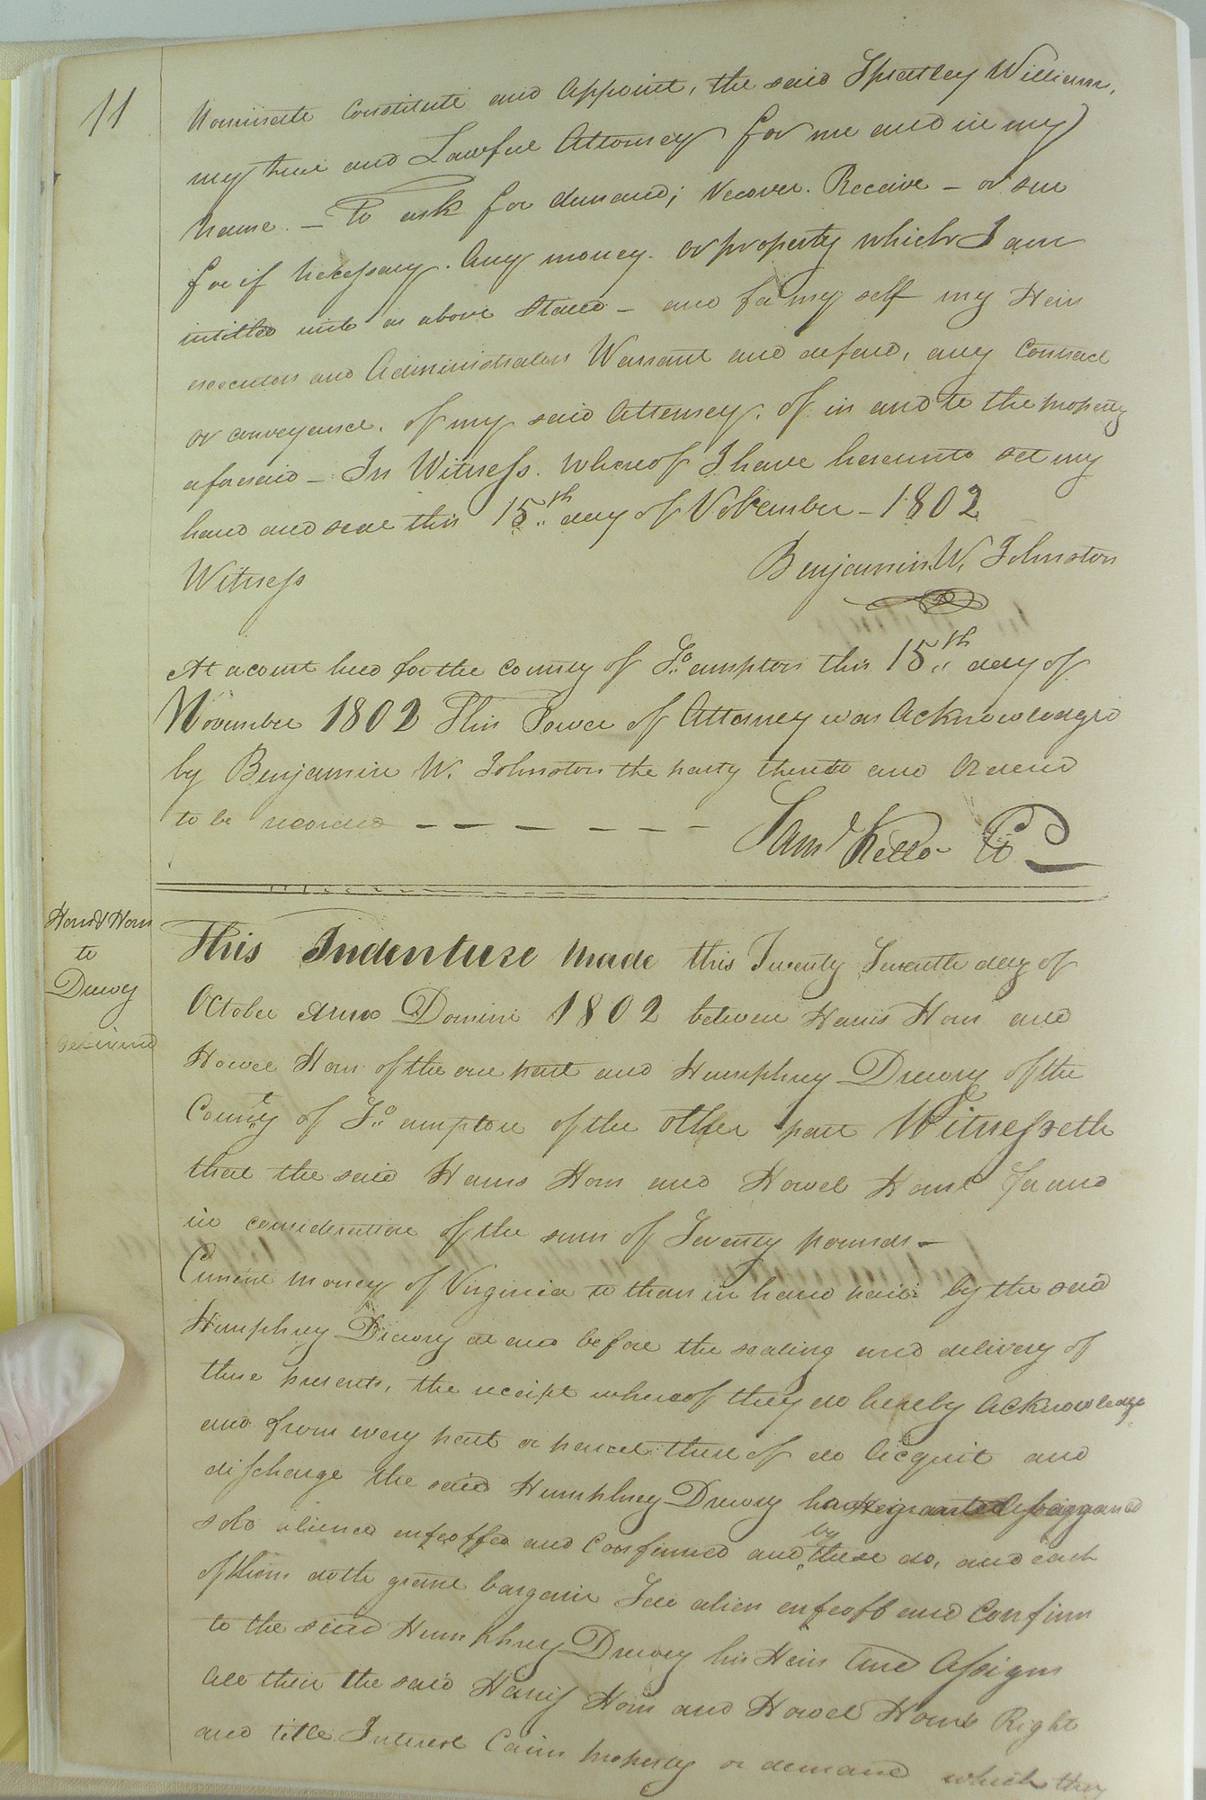 11
Nominate Constitute and Appoint, the said Spratley Williams,
my true and Lawful Attorney for me and in my
name. — To ask for demand; recover. Receive — or sue
for if necessary. Any money. or property which I am
intitled unto as above Stated — and for my self my Heirs
executors and Administrators Warrant and defend, any Contract
or conveyance. of my said Attorney. of in and to the property
aforesaid — In Witness. whereof I have hereunto set my
hand and seal this 15th day of November — 1802
Benjamin W. Johnston
Witness
At a court held for the County of So. ampton this 15th day of
November 1802 This Power of Attorney was Acknowledged
by Benjamin W. Johnston the party thereto and Ordered
to be recorded — — — — — —
Saml Kello CC
Horn & Horn
to
Drewry
This Indenture Made this Twenty Seventh day of
October Anno Domini 1802 between Harris Horn and
Howel Horn of the one part and Humphrey Drewry of the
County of So. ampton of the other part Witnesseth
that the said Harris Horn and Howel Horn for and
in consideration of the sum of Seventy pounds —
Current money of Virginia to them in hand paid by the said
Humphrey Drewry at and before the sealing and delivery of
these presents, the receipt whereof they do hereby Acknowledge
and from every part or parcel thereof do Acquit and
discharge the said Humphrey Drewry have granted bargained
sold aliened enfeoffed and Confirmed and by these do, and each
of them doth grant bargain Sell alien enfeoff and Confirm
to the said Humphrey Drewry his Heirs And Assigns
All their the said Harris Horn and Howel Horns Right
and title Interest Claim property or demand which they